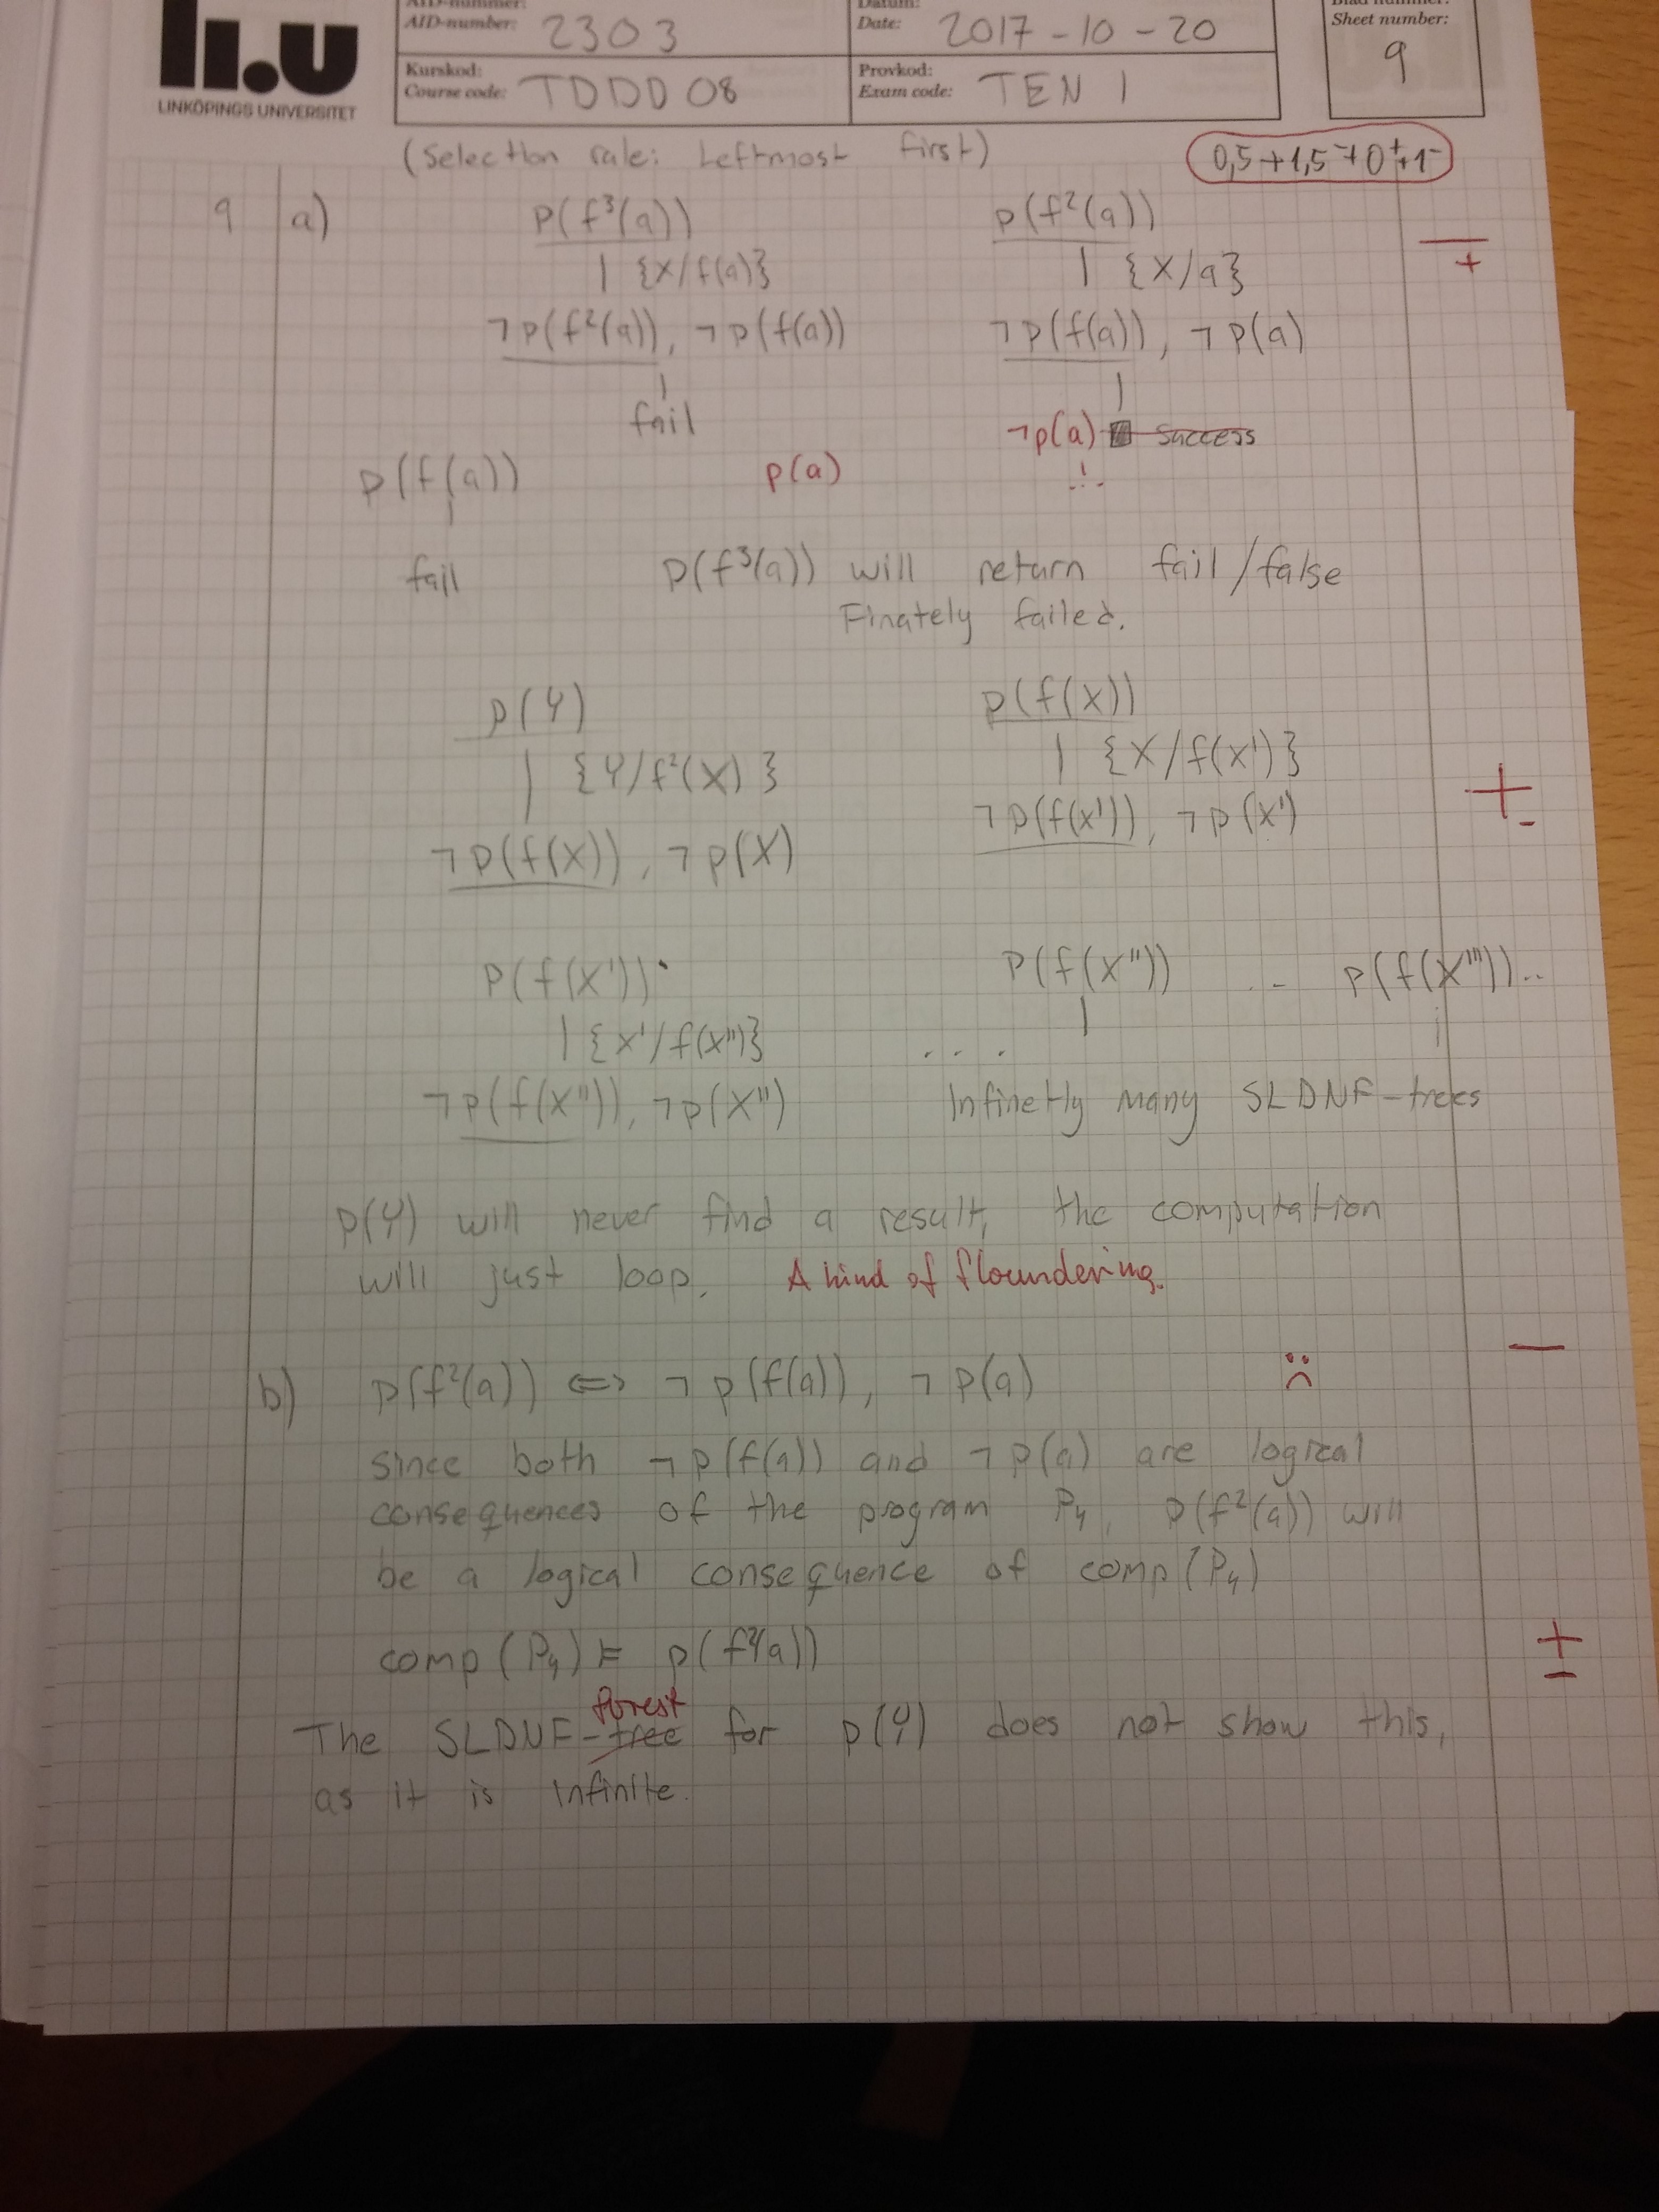 AID-number: 2303
Datum:
Date: 2017-10-20
Sheet number:
9
Kurskod:
Course code: TDDD08
Provkod:
Exam code: TEN 1
li.u
LINKÖPINGS UNIVERSITET
(Selection rule: Leftmost first)
0,5+1,5⁻+0⁺+1⁻
9 a)
p(f³(a)) p(f²(a))
| {X/f(a)} | {X/a}
¬p(f²(a)), ¬p(f(a)) ¬p(f(a)), ¬p(a)
fail ¬p(a) success
p(f(a)) p(a)
fail p(f³(a)) will return fail/false
Finately failed.
p(Y) p(f(X))
| {Y/f²(X)} | {X/f(X')}
¬p(f(X)), ¬p(X) ¬p(f(X')), ¬p(X')
p(f(X')) p(f(X'')) .. p(f(X''')) ..
| {X'/f(X'')} ....
¬p(f(X'')), ¬p(X'') Infinetly many SLDNF-trees
p(Y) will never find a result, the computation
will just loop. A kind of floundering.
b) p(f²(a)) ⟺ ¬p(f(a)), ¬p(a)
since both ¬p(f(a)) and ¬p(a) are logical
consequences of the program P₄, p(f²(a)) will
be a logical consequence of comp(P₄)
comp(P₄) ⊨ p(f²(a))
forest
The SLDNF-tree for p(Y) does not show this,
as it is infinite.